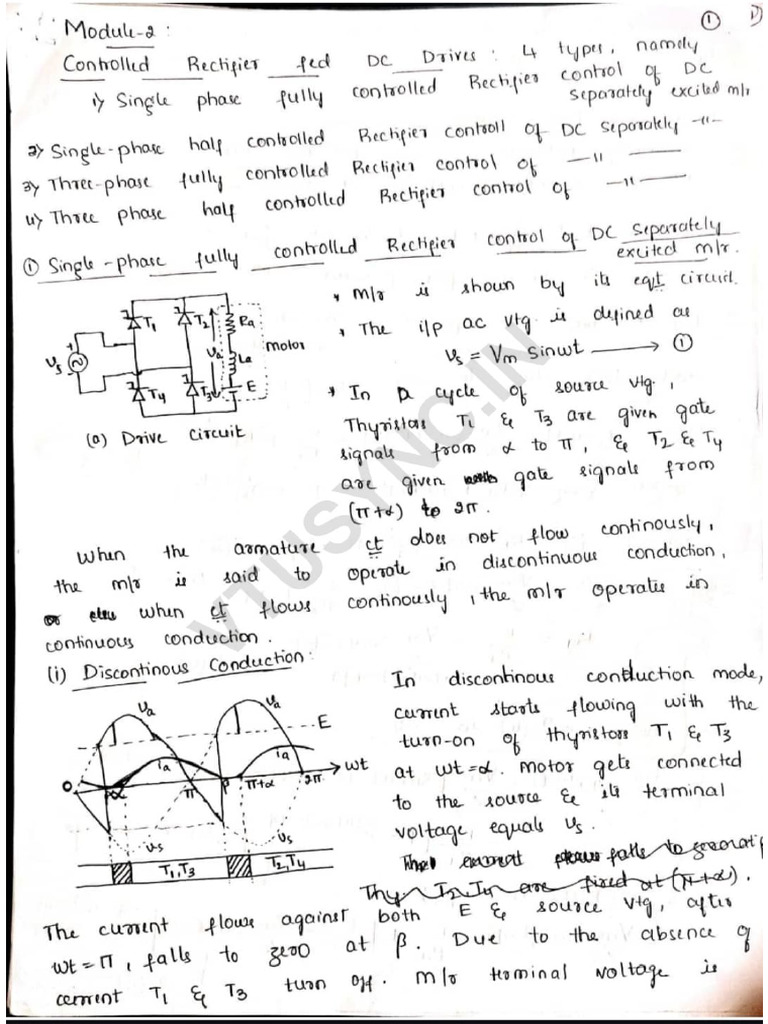 ①
Module-2 :
Controlled Rectifier fed DC Drives : 4 types, namely
1) Single phase fully controlled Rectifier control of DC
separately excited m/r
2) Single-phase half controlled Rectifier controll of DC separately -"-
3) Three-phase fully controlled Rectifier control of —"——
4) Three phase half controlled Rectifier control of —"——
① Single-phase fully controlled Rectifier control of DC Separately
excited m/r.
T1
T2
Ra
Va
La
motor
Vs
T4
T3
E
(a) Drive Circuit
* m/r is shown by its eqt circuit.
* The i/p ac vtg is defined as
Vs = Vm sinωt ——→ ①
* In a cycle of source vtg,
Thyristors T1 & T3 are given gate
signals from α to π, & T2 & T4
are given gate signals from
(π+α) to 2π.
When the armature ct does not flow continously,
the m/r is said to operate in discontinuous conduction,
when ct flows continously, the m/r operates in
continuous conduction.
(i) Discontinous Conduction:
Va
Va
E
ia
ia
O
α
π
β
π+α
2π
ωt
Vs
Vs
T1,T3
T2,T4
In discontinous conduction mode,
current starts flowing with the
turn-on of thyristors T1 & T3
at ωt=α. Motor gets connected
to the source & its terminal
voltage equals Vs.
Thy. T2,T4 are fired at (π+α).
The current flows against both E & source vtg, after
ωt = π, falls to zero at β. Due to the absence of
current T1 & T3 turn off. m/r terminal voltage is
VTUSYNC.IN